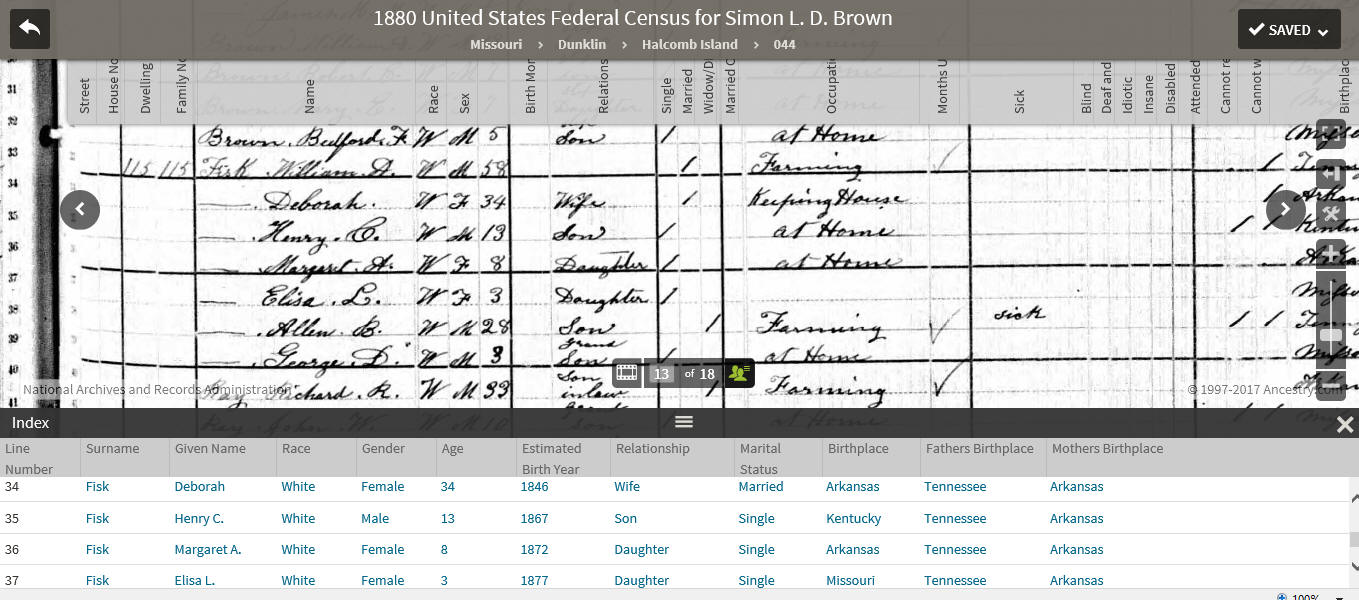 1880 United States Federal Census for Simon L. D. Brown
SAVED
Missouri > Dunklin > Halcomb Island > 044
Street House No Dwelling Family N Name Race Sex Birth Mon Relations Single Married Widow/D Married C Occupati Months U Sick Blind Deaf and Idiotic Insane Disabled Attended Cannot re Cannot w Birthplac
31
32 Brown, Bedford F. W M 5 Son / at Home
33 115 115 Fisk William A. W M 58 / Farming /
34 — Deborah. W F 34 Wife / Keeping House / Arkan
35 — Henry C. W M 13 Son / at Home / / Kentu
36 — Margaret A. W F 8 Daughter / at Home Arka
37 — Elisa L. W F 3 Daughter / Misso
38 — Allen B. W M 28 Son / Farming sick / / Tenn
39 — George D. W M 3 grand Son / at Home Misso
40 Ray Richard R. W M 33 Son inlaw / Farming
41 Ray John W. W M 10 grand son at Home
13 of 18
National Archives and Records Administration
© 1997-2017 Ancestry.com
Index
Line Number Surname Given Name Race Gender Age Estimated Birth Year Relationship Marital Status Birthplace Fathers Birthplace Mothers Birthplace
34 Fisk Deborah White Female 34 1846 Wife Married Arkansas Tennessee Arkansas
35 Fisk Henry C. White Male 13 1867 Son Single Kentucky Tennessee Arkansas
36 Fisk Margaret A. White Female 8 1872 Daughter Single Arkansas Tennessee Arkansas
37 Fisk Elisa L. White Female 3 1877 Daughter Single Missouri Tennessee Arkansas
100%